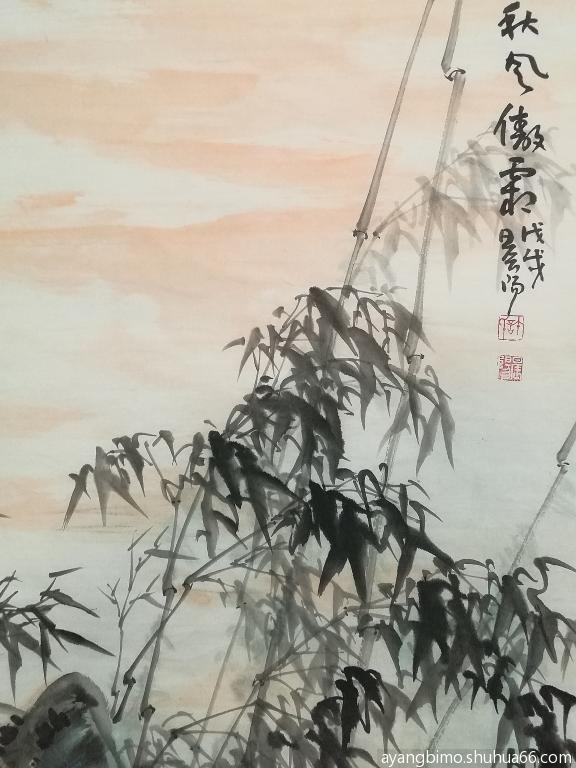 秋风傲霜
戊戌
景阳
ayangbimo.shuhua66.com